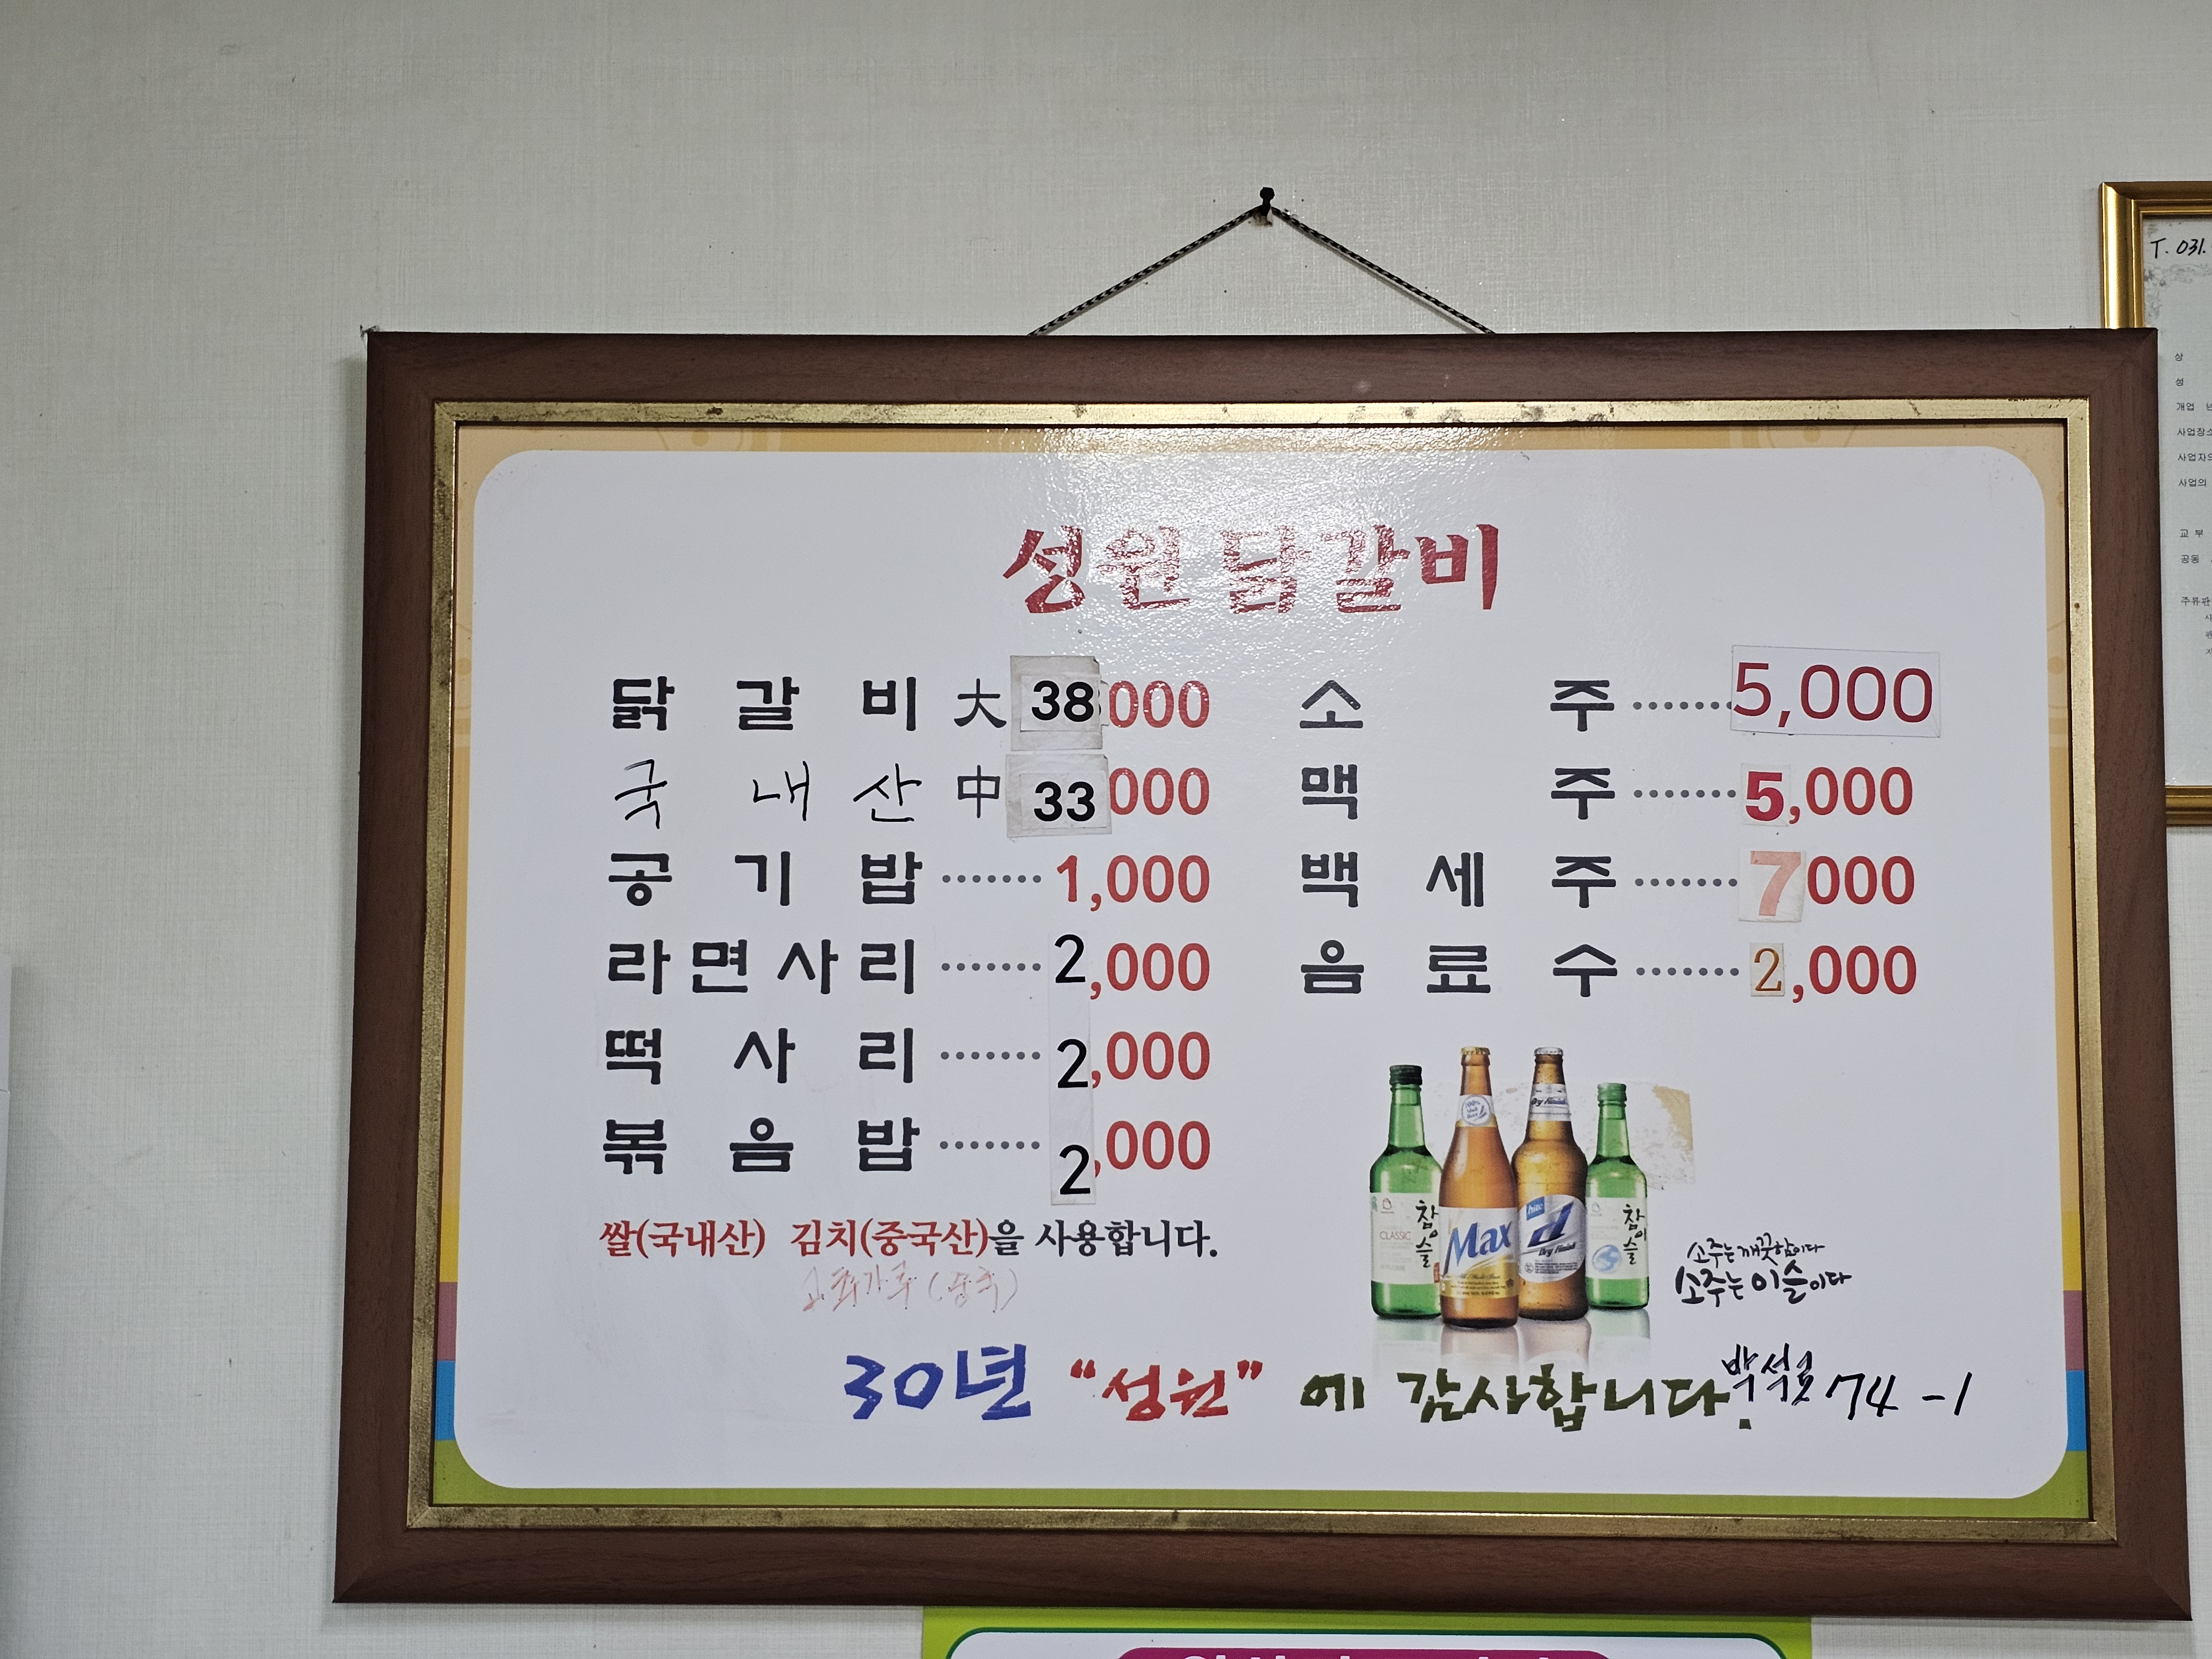 성원 닭갈비
닭 갈 비 大 38,000
국 내 산 中 33,000
공 기 밥 ······· 1,000
라면사리 ······· 2,000
떡 사 리 ······· 2,000
볶 음 밥 ······· 2,000
쌀(국내산) 김치(중국산)을 사용합니다.
고추가루(중국)
소 주 ······· 5,000
맥 주 ······· 5,000
백 세 주 ······· 7000
음 료 수 ······· 2,000
참이슬
CLASSIC
Max
hite
d
Dry Finish
참이슬
소주는 깨끗함이다
소주는 이슬이다
30년 "성원" 에 감사합니다.
74-1
T. 031.
상
성
개업
사업장소
사업의
교 부
공동
주류판